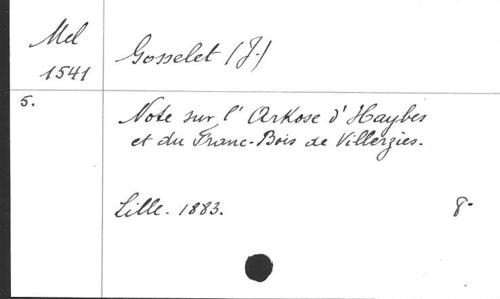 Mel
1541
Gosselet (J.)
5.
Note sur l'Arkose d'Haybes
et du Franc-Bois de Villerzies.
Lille. 1883.
8°